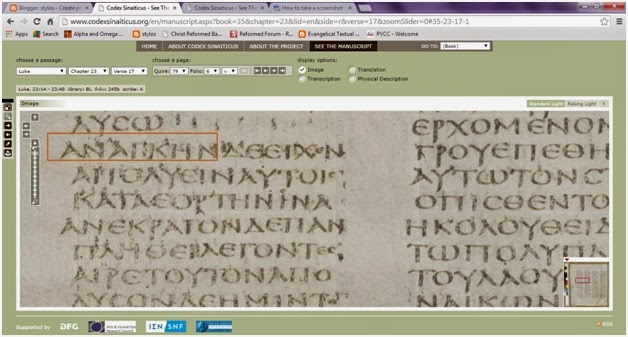 Blogger: stylos - Create p
Codex Sinaiticus - See The
Codex Sinaiticus - See The
How to take a screenshot
www.codexsinaiticus.org/en/manuscript.aspx?book=35&chapter=23&lid=en&side=r&verse=17&zoomSlider=0#35-23-17-1
Apps
Search
Alpha and Omega
Christ Reformed Ba
Reformed Forum - R
Evangelical Textual
PVCC - Welcome
HOME
ABOUT CODEX SINAITICUS
ABOUT THE PROJECT
SEE THE MANUSCRIPT
GO TO: (Book)
choose a passage:
Luke Chapter 23 Verse 17
choose a page:
Quire: 79 Folio: 6 v
display options:
Image
Translation
Transcription
Physical Description
Luke, 23:14 - 23:48 library: BL folio: 245b scribe: A
Image
Standard Light
Raking Light
ΛΥϹΩ
ΑΝΑΓΚΗΝΔΕΕΙΧΕΝ
ΑΠΟΛΥΕΙΝΑΥΤΟΙϹ
ΚΑΤΑΕΟΡΤΗΝΙΝΑ
ΑΝΕΚΡΑΓΟΝΔΕΠΑΝ
ΠΛΗΘΕΙΛΕΓΟΝΤΕϹ
ΑΙΡΕΤΟΥΤΟΝΑΠΟ
ΛΥϹΟΝΔΕΗΜΙΝΤ
ΕΡΧΟΜΕΝΟΝ
ΓΡΟΥΕΠΕΘΗ
ΑΥΤΩΤΟΝϹ
ΟΠΙϹΘΕΝΤΟ
ΗΚΟΛΟΥΘΕΙΔ
ΤΩΠΟΛΥΠΛ
ΤΟΥΛΑΟΥ
ΝΑΙΚΩΝ
Supported by
DFG
Arts & Humanities
Research Council
SNF
RSS